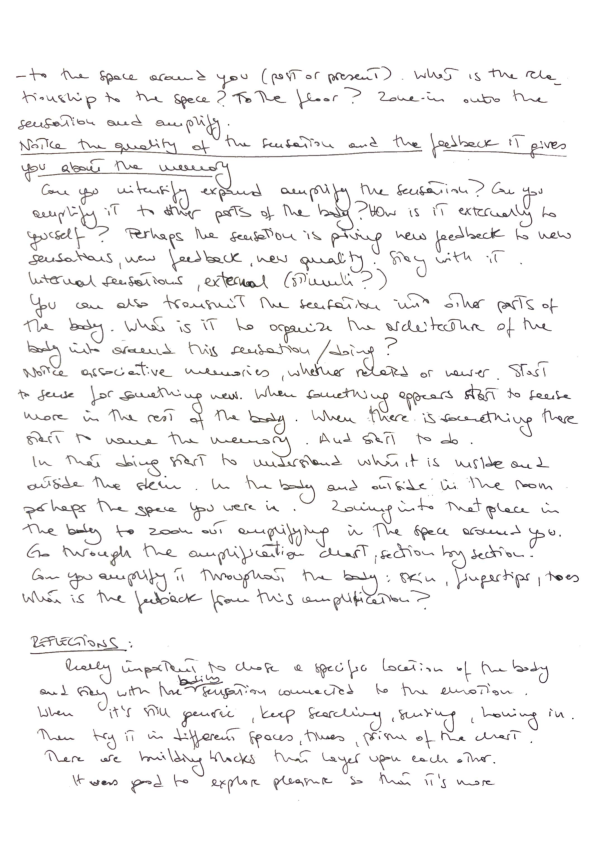 - to the space around you (past or present). What is the rela_
tionship to the space? To the floor? Zone-in onto the
sensation and amplify.
Notice the quality of the sensation and the feedback it gives
you about the memory
Can you intensify expand amplify the sensation? Can you
amplify it to other parts of the body? How is it externally to
yourself? Perhaps the sensation is giving new feedback to new
sensations, new feedback, new quality. Stay with it.
Internal sensations, external (stimuli?)
You can also transmit the sensation into other parts of
the body. What is it to organize the architecture of the
body into around this sensation / doing?
Notice associative memories, whether related or newer. Start
to sense for something new. When something appears start to sense
more in the rest of the body. When there is something there
start to name the memory. And start to do.
In that doing start to understand what it is inside and
outside the skin. In the body and outside in the room
perhaps the space you were in. Zoning into that place in
the body to zoom out amplifying in the space around you.
Go through the amplification chart, section by section.
Can you amplify it throughout the body: skin, fingertips, toes
What is the feedback from this amplification?
REFLECTIONS:
Really important to chose a specific location of the body
and stay with the bodily sensation connected to the emotion.
When it's still generic, keep searching, sensing, honing in.
Then try it in different spaces, times, prism of the chart.
There are building blocks that layer upon each other.
It was good to explore pleasure so that it's more